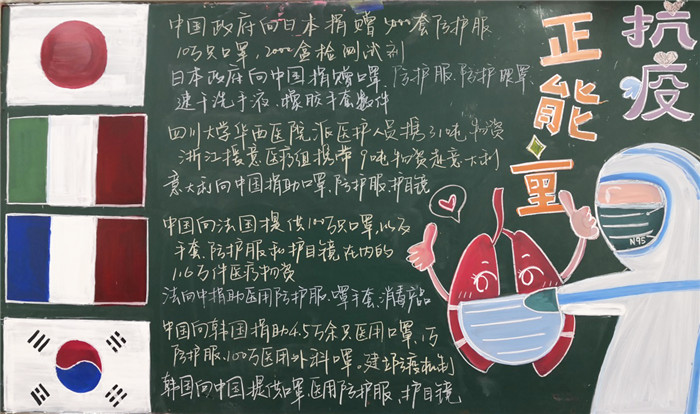 抗疫
正能量
中国政府向日本捐赠5000套防护服
10万只口罩，2000盒检测试剂
日本政府向中国捐赠口罩、防护服、防护眼罩、
速干洗手液、橡胶手套数件
四川大学华西医院派医护人员携31吨物资
浙江援意医疗组携带9吨物资赴意大利
意大利向中国捐助口罩、防护服、护目镜
中国向法国提供100万只口罩以及
手套、防护服和护目镜在内的
1.6万件医疗物资
法向中捐助医用防护服、罩手套、消毒产品
中国向韩国捐助4.5万余只医用口罩、1万
防护服、100万医用外科口罩。建立防疫机制
韩国向中国提供口罩、医用防护服、护目镜
N95